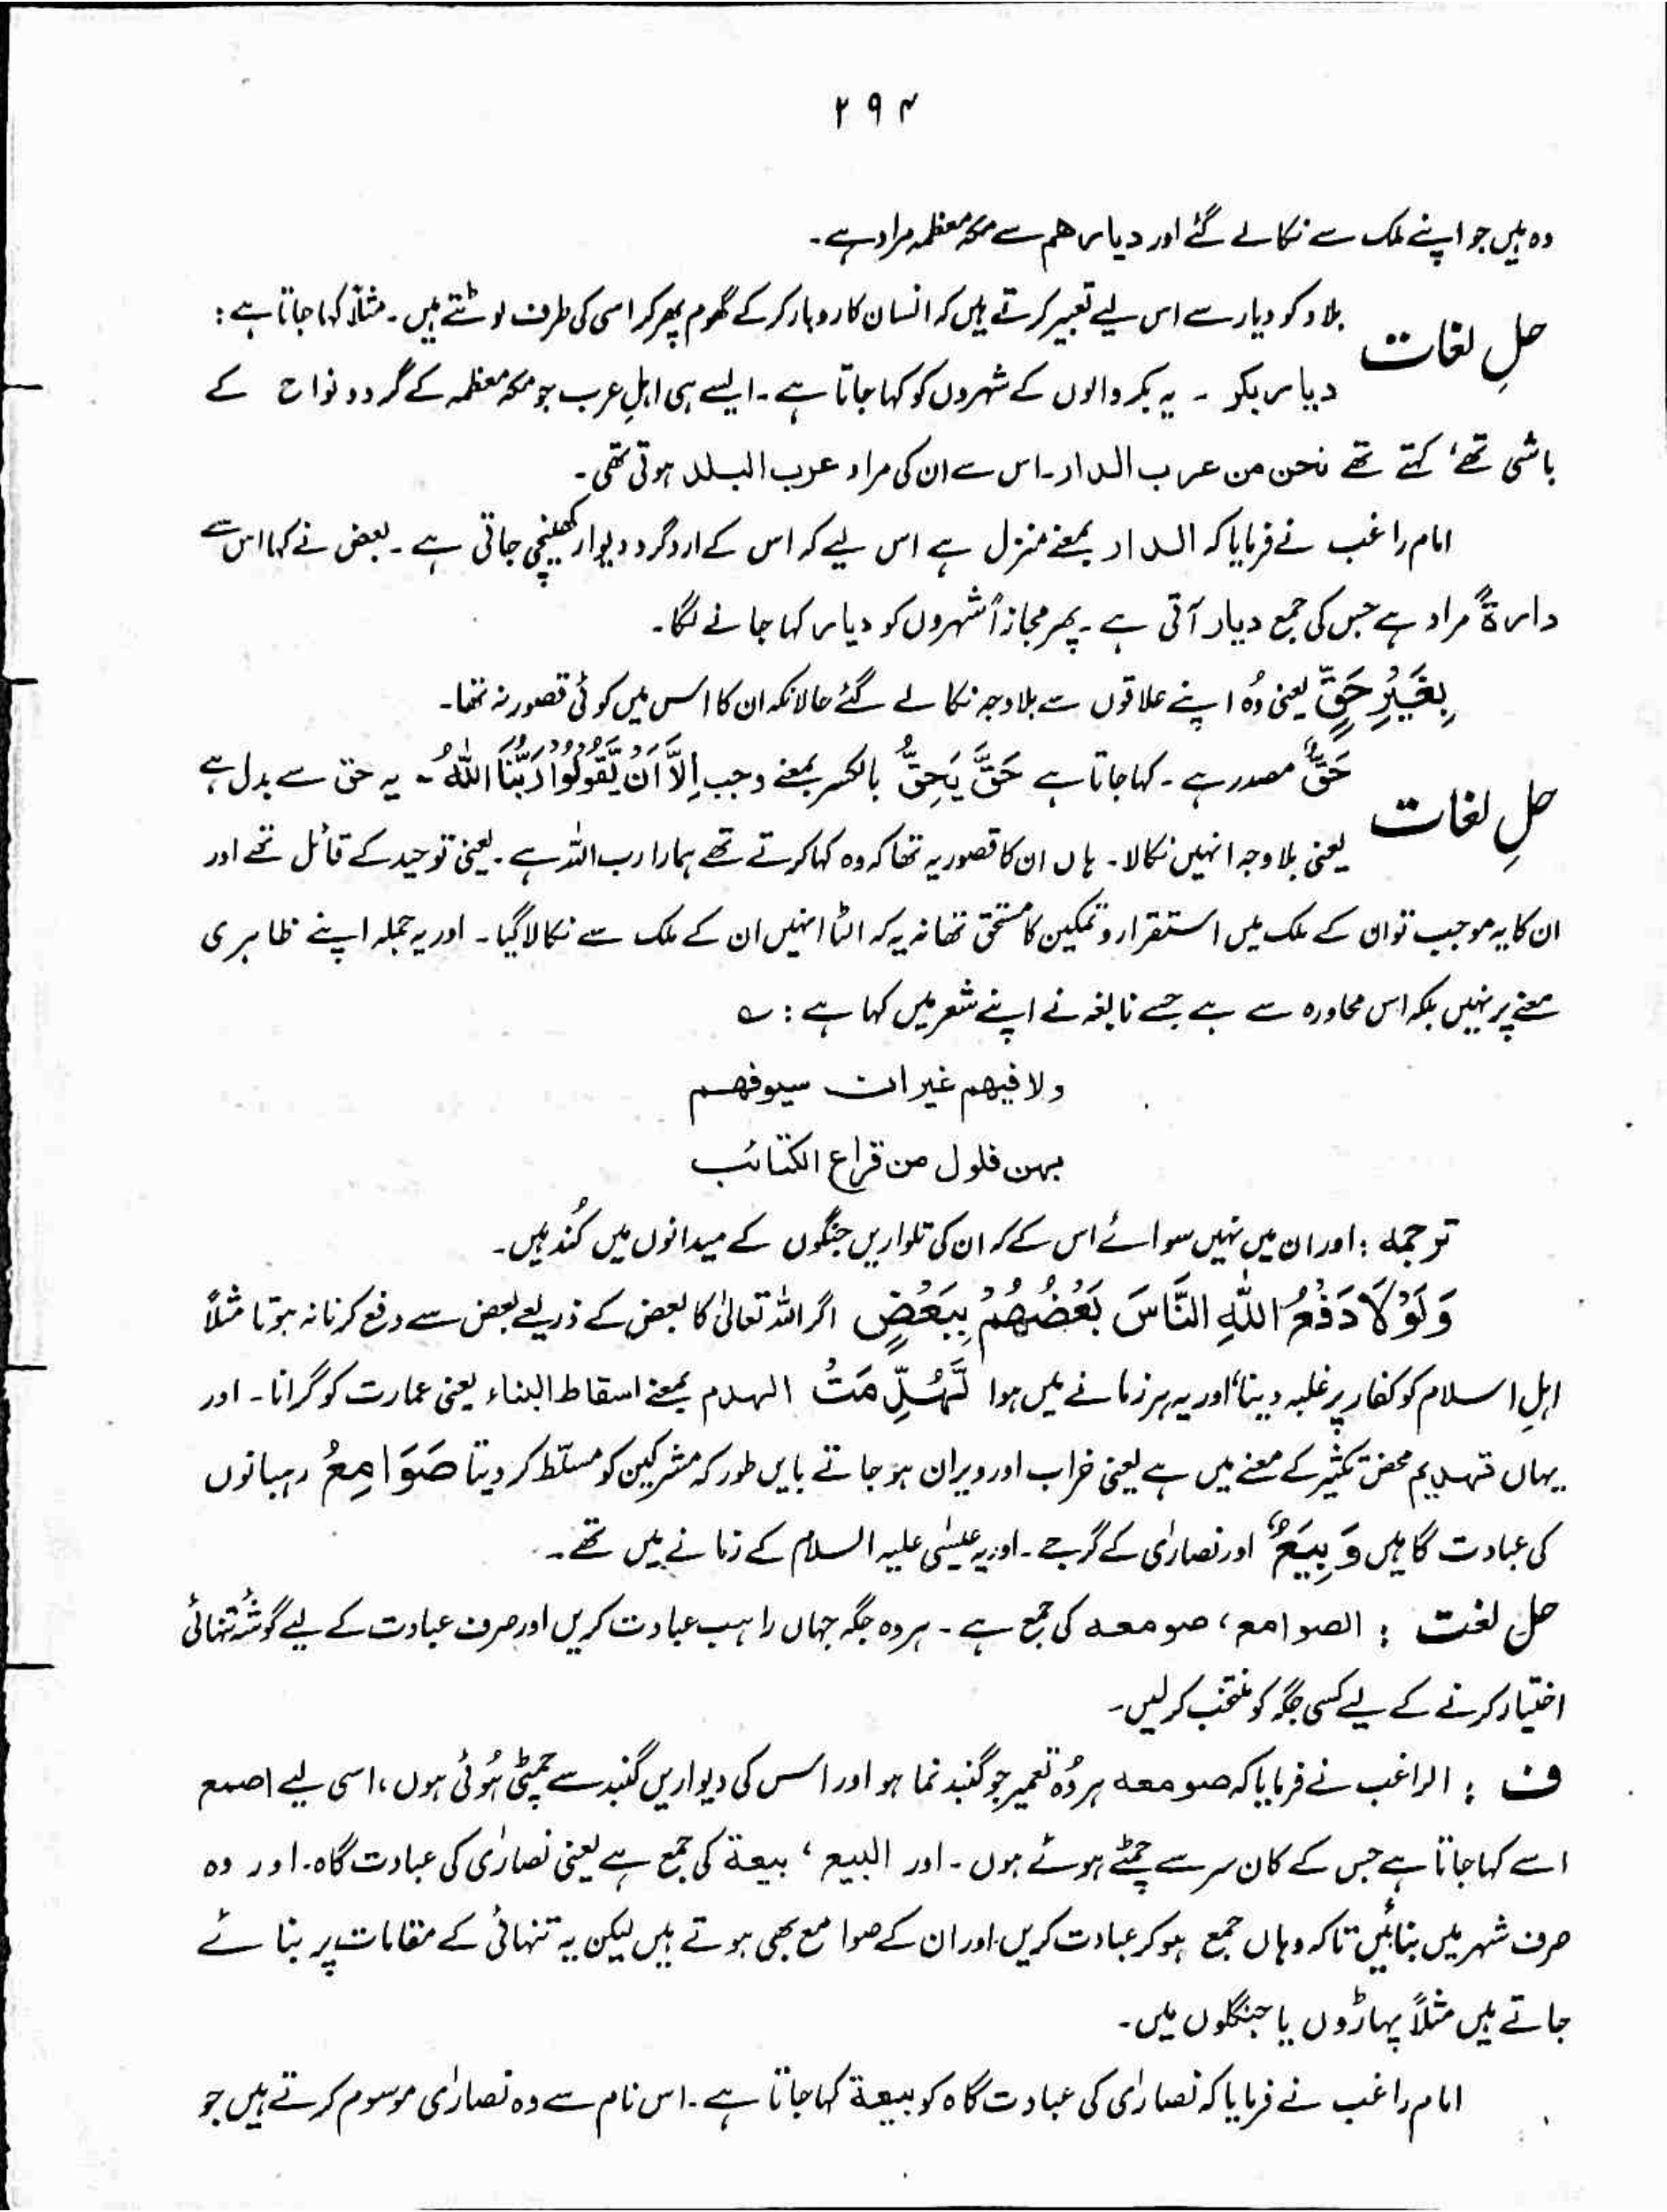 ۲۹۴
وہ ہیں جو اپنے ملک سے نکالے گئے اور دیارھم سے مکہ معظمہ مراد ہے۔
حلِ لغات بلاد کو دیار سے اس لیے تعبیر کرتے ہیں کہ انسان کاروبار کر کے گھوم پھر کر اسی کی طرف لوٹتے ہیں۔ مثلاً کہا جاتا ہے :
دیار بکر ۔ یہ بکر والوں کے شہروں کو کہا جاتا ہے۔ ایسے ہی اہلِ عرب جو مکہ معظمہ کے گردو نواح کے
باشی تھے، کہتے تھے نحن من عرب الدار۔ اس سے ان کی مراد عرب البلد ہوتی تھی۔
امام راغب نے فرمایا کہ الدار بمعنے منزل ہے اس لیے کہ اس کے ارد گرد دیوار کھینچی جاتی ہے۔ بعض نے کہا اس سے
دارۃٌ مراد ہے جس کی جمع دیار آتی ہے۔ پھر مجازاً شہروں کو دیار کہا جانے لگا۔
بِغَيْرِ حَقٍّ یعنی وُہ اپنے علاقوں سے بلاوجہ نکالے گئے حالانکہ ان کا اس میں کوئی قصور نہ تھا۔
حلِ لغات حَقٌّ مصدر ہے۔ کہا جاتا ہے حَقَّ يَحِقُّ بالکسر بمعنے وجب اِلَّآ اَنْ يَّقُوْلُوْا رَبُّنَا اللّٰهُ ۔ یہ حق سے بدل ہے
یعنی بلا وجہ انہیں نکالا۔ ہاں ان کا قصور یہ تھا کہ وہ کہا کرتے تھے ہمارا رب اللہ ہے۔ یعنی توحید کے قائل تھے اور
ان کا یہ موجب توان کے ملک میں استقرار و تمکین کا مستحق تھا نہ یہ کہ الٹا انہیں ان کے ملک سے نکالا گیا۔ اور یہ جملہ اپنے ظاہری
معنے پر نہیں بلکہ اس محاورہ سے ہے جسے نابغہ نے اپنے شعر میں کہا ہے : ؎
ولا فیھم غیر ان سیوفھم
بہن فلول من قراع الکتائب
ترجمہ : اور ان میں نہیں سوائے اس کے کہ ان کی تلواریں جنگوں کے میدانوں میں کُند ہیں۔
وَلَوْلَا دَفْعُ اللّٰهِ النَّاسَ بَعْضُهُمْ بِبَعْضٍ اگر اللہ تعالیٰ کا بعض کے ذریعے بعض سے دفع کرنا نہ ہوتا مثلاً
اہلِ اسلام کو کفار پر غلبہ دینا، اور یہ ہر زمانے میں ہوا لَّهُدِّمَتْ الہدم بمعنے اسقاط البناء یعنی عمارت کو گرانا۔ اور
یہاں تہدیم محض تکثیر کے معنے میں ہے یعنی خراب اور ویران ہو جاتے بایں طور کہ مشرکین کو مسلّط کر دیتا صَوَامِعُ رہبانوں
کی عبادت گاہیں وَبِيَعٌ اور نصارٰی کے گرجے۔ اور یہ عیسٰی علیہ السلام کے زمانے میں تھے۔
حل لغت : الصوامع، صومعہ کی جمع ہے۔ ہر وہ جگہ جہاں راہب عبادت کریں اور صرف عبادت کے لیے گوشۂ تنہائی
اختیار کرنے کے لیے کسی جگہ کو منتخب کرلیں۔
ف : الراغب نے فرمایا کہ صومعہ ہر وُہ تعمیر جو گنبد نما ہو اور اس کی دیواریں گنبد سے چمٹی ہُوئی ہوں، اسی لیے اصمع
اسے کہا جاتا ہے جس کے کان سر سے چمٹے ہوئے ہوں۔ اور البیع، بیعۃ کی جمع ہے یعنی نصارٰی کی عبادت گاہ۔ اور وہ
صرف شہر میں بنائیں تاکہ وہاں جمع ہو کر عبادت کریں اور ان کے صوامع بھی ہوتے ہیں لیکن یہ تنہائی کے مقامات پر بنائے
جاتے ہیں مثلاً پہاڑوں یا جنگلوں میں۔
امام راغب نے فرمایا کہ نصارٰی کی عبادت گاہ کو بیعۃ کہا جاتا ہے۔ اس نام سے وہ نصارٰی موسوم کرتے ہیں جو